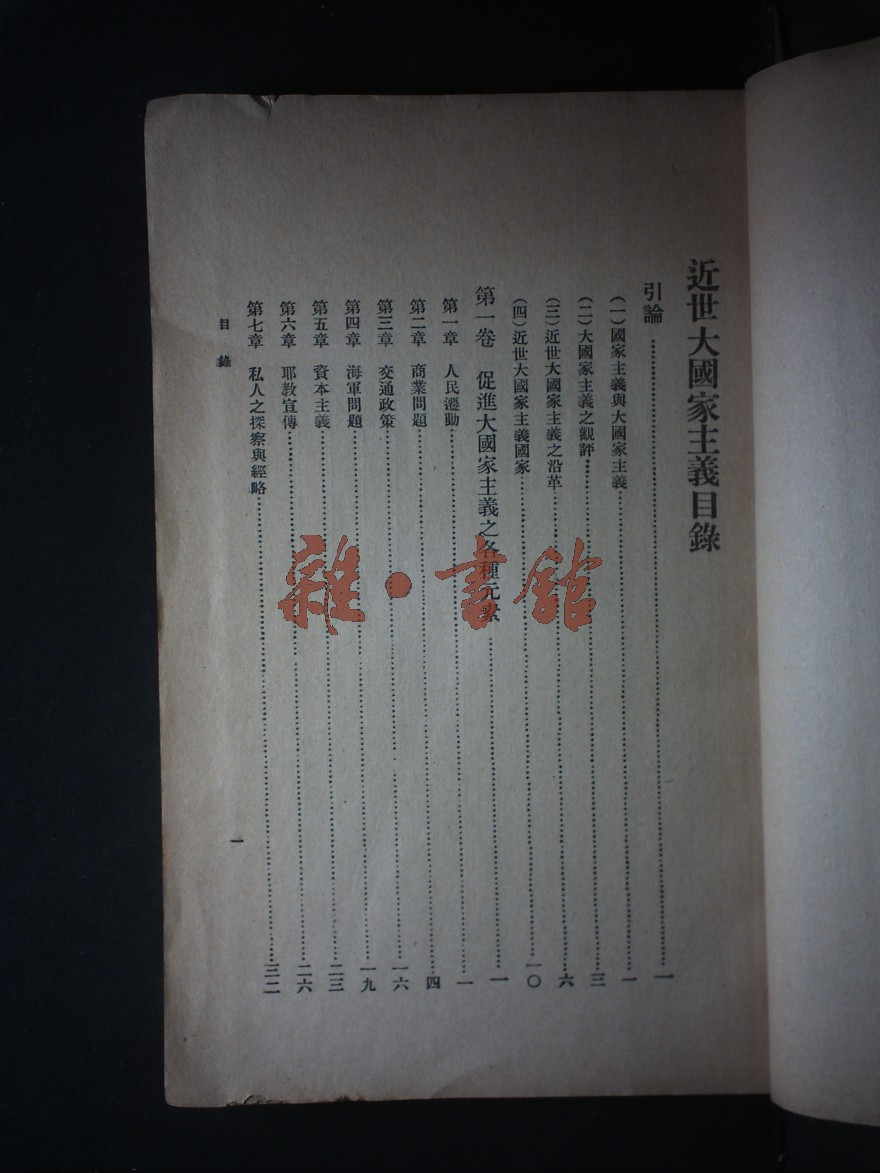 近世大國家主義目錄
引論……一
(一)國家主義與大國家主義……一
(二)大國家主義之觀評……三
(三)近世大國家主義之沿革……六
(四)近世大國家主義國家……一〇
第一卷 促進大國家主義之各種元素……一
第一章 人民遷動……一
第二章 商業問題……四
第三章 交通政策……一六
第四章 海軍問題……一九
第五章 資本主義……二三
第六章 耶教宣傳……二六
第七章 私人之探察與經略……三二
目錄
一
雜·書館